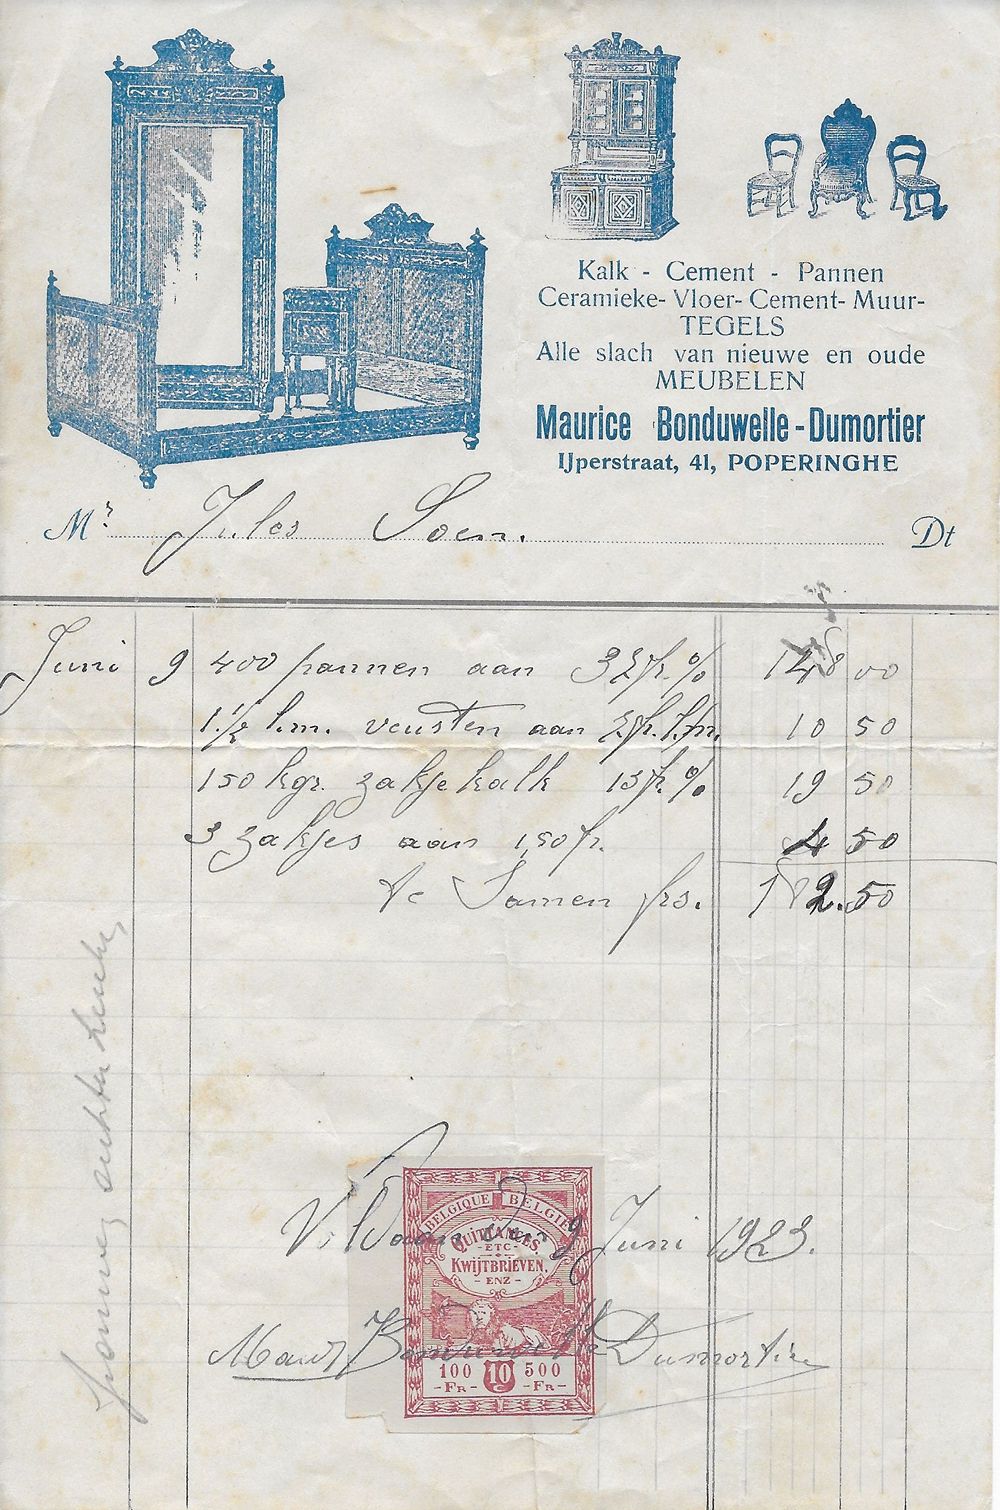 Kalk - Cement - Pannen
Ceramieke- Vloer- Cement- Muur-
TEGELS
Alle slach van nieuwe en oude
MEUBELEN
Maurice Bonduwelle-Dumortier
IJperstraat, 41, POPERINGHE
Mr Jules Soen. Dt
Juni 9 400 pannen aan 37fr. % 148 00
1 1/2 l.m. veusten aan 7fr. l.m. 10 50
150 kgr. zakje kalk 13fr % 19 50
3 zakjes aan 1,50 fr. 4 50
te Samen frs. 182.50
Voldaan den 9 Juni 1923.
BELGIQUE BELGIE
QUITTANCES,
-ETC-
KWIJTBRIEVEN,
-ENZ-
Maur Bonduwelle Dumortier
100 10 500
-FR- C -FR-